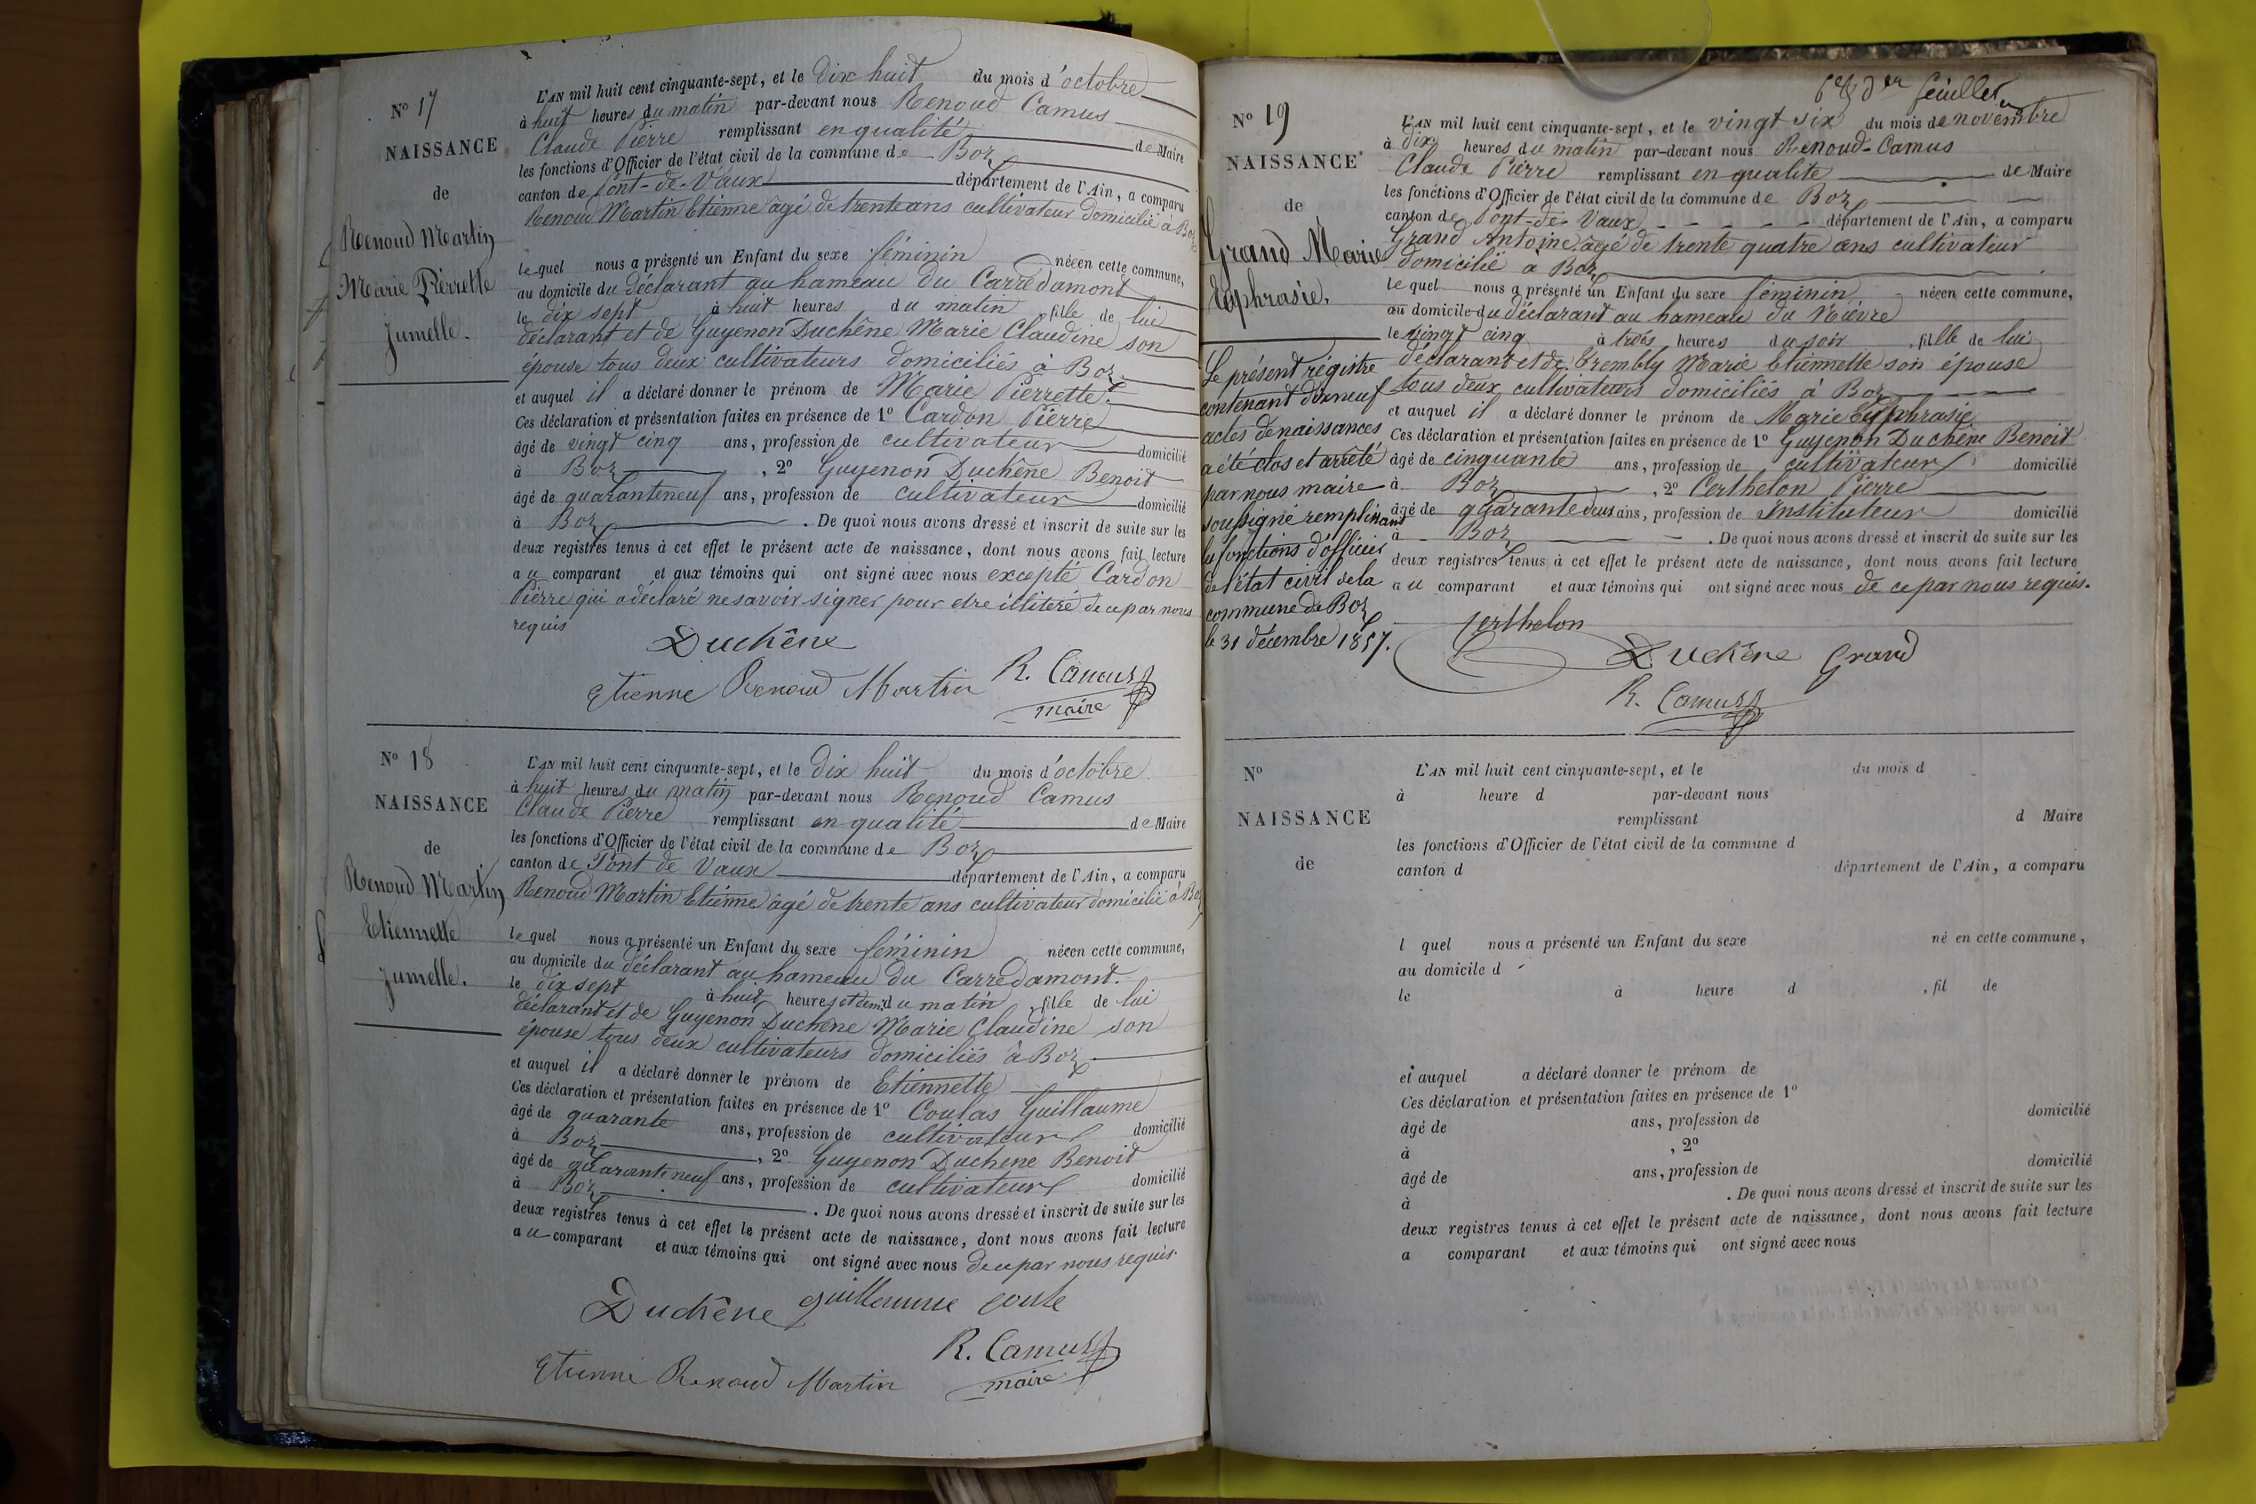 N° 17
NAISSANCE
de
Renoud Martin
Marie Pierrette
Jumelle.
L'AN mil huit cent cinquante-sept, et le dix huit du mois d'octobre
à huit heures du matin par-devant nous Renoud Camus
Claude Pierre remplissant en qualité de Maire
les fonctions d'Officier de l'état civil de la commune de Boz
canton de Pont-de-Vaux département de l'Ain, a comparu
Renoud Martin Etienne âgé de trente ans cultivateur domicilié à Boz
lequel nous a présenté un Enfant du sexe féminin née en cette commune,
au domicile du déclarant au hameau du Carre damont
le dix sept à huit heures du matin fille de lui
déclarant et de Guyenon Duchêne Marie Claudine son
épouse tous deux cultivateurs domiciliés à Boz
et auquel il a déclaré donner le prénom de Marie Pierrette.
Ces déclaration et présentation faites en présence de 1° Cardon Pierre
âgé de vingt cinq ans, profession de cultivateur domicilié
à Boz, 2° Guyenon Duchêne Benoit
âgé de quaranteneuf ans, profession de cultivateur domicilié
à Boz. De quoi nous avons dressé et inscrit de suite sur les
deux registres tenus à cet effet le présent acte de naissance, dont nous avons fait lecture
au comparant et aux témoins qui ont signé avec nous excepté Cardon
Pierre qui a déclaré ne savoir signer pour etre illitéré de ce par nous
requis
Duchêne
Etienne Renoud Martin R. Camus
maire
N° 18
NAISSANCE
de
Renoud Martin
Etiennette
Jumelle.
L'AN mil huit cent cinquante-sept, et le dix huit du mois d'octobre
à huit heures du matin par-devant nous Renoud Camus
Claude Pierre remplissant en qualité de Maire
les fonctions d'Officier de l'état civil de la commune de Boz
canton de Pont de Vaux département de l'Ain, a comparu
Renoud Martin Etienne âgé de trente ans cultivateur domicilié à Boz
lequel nous a présenté un Enfant du sexe féminin née en cette commune,
au domicile du déclarant au hameau du Carre damont.
le dix sept à huit heures et demi du matin, fille de lui
déclarant et de Guyenon Duchêne Marie Claudine son
épouse tous deux cultivateurs domiciliés à Boz
et auquel il a déclaré donner le prénom de Etiennette
Ces déclaration et présentation faites en présence de 1° Coulas Guillaume
âgé de quarante ans, profession de cultivateur domicilié
à Boz, 2° Guyenon Duchene Benoit
âgé de quaranteneuf ans, profession de cultivateur domicilié
à Boz. De quoi nous avons dressé et inscrit de suite sur les
deux registres tenus à cet effet le présent acte de naissance, dont nous avons fait lecture
au comparant et aux témoins qui ont signé avec nous de ce par nous requis.
Duchêne guillaume
Etienne Renoud Martin R. Camus
maire
feuillet
N° 19
NAISSANCE
de
Grand Marie
Euphrasie.
Le présent régistre
contenant dixneuf
actes de naissances
a été clos et arrêté
par nous maire
soussigné remplissant
les fonctions d'officier
de l'état civil de la
commune de Boz
le 31 décembre 1857.
L'AN mil huit cent cinquante-sept, et le vingt six du mois de novembre
à dix heures du matin par-devant nous Renoud-Camus
Claude Pierre remplissant en qualité de Maire
les fonctions d'Officier de l'état civil de la commune de Boz
canton de Pont-de-Vaux département de l'Ain, a comparu
Grand Antoine âgé de trente quatre ans cultivateur
domicilié à Boz
lequel nous a présenté un Enfant du sexe féminin née en cette commune,
au domicile du déclarant au hameau du
le vingt cinq à trois heures du soir, fille de lui
déclarant et de Trembly Marie Etiennette son épouse
tous deux cultivateurs domiciliés à Boz
et auquel il a déclaré donner le prénom de Marie Euphrasie
Ces déclaration et présentation faites en présence de 1° Guyenon Duchêne Benoit
âgé de cinquante ans, profession de cultivateur domicilié
à Boz, 2° Certhelon Pierre
âgé de quarante deux ans, profession de Instituteur domicilié
à Boz. De quoi nous avons dressé et inscrit de suite sur les
deux registres tenus à cet effet le présent acte de naissance, dont nous avons fait lecture
au comparant et aux témoins qui ont signé avec nous de ce par nous requis.
Certhelon
Duchêne Grand
R. Camus
N°
NAISSANCE
de
L'AN mil huit cent cinquante-sept, et le du mois d
à heure d par-devant nous
remplissant d Maire
les fonctions d'Officier de l'état civil de la commune d
canton d département de l'Ain, a comparu
l quel nous a présenté un Enfant du sexe né en cette commune,
au domicile d
le à heure d , fil de
et auquel a déclaré donner le prénom de
Ces déclaration et présentation faites en présence de 1°
âgé de ans, profession de domicilié
à , 2°
âgé de ans, profession de domicilié
à . De quoi nous avons dressé et inscrit de suite sur les
deux registres tenus à cet effet le présent acte de naissance, dont nous avons fait lecture
a comparant et aux témoins qui ont signé avec nous